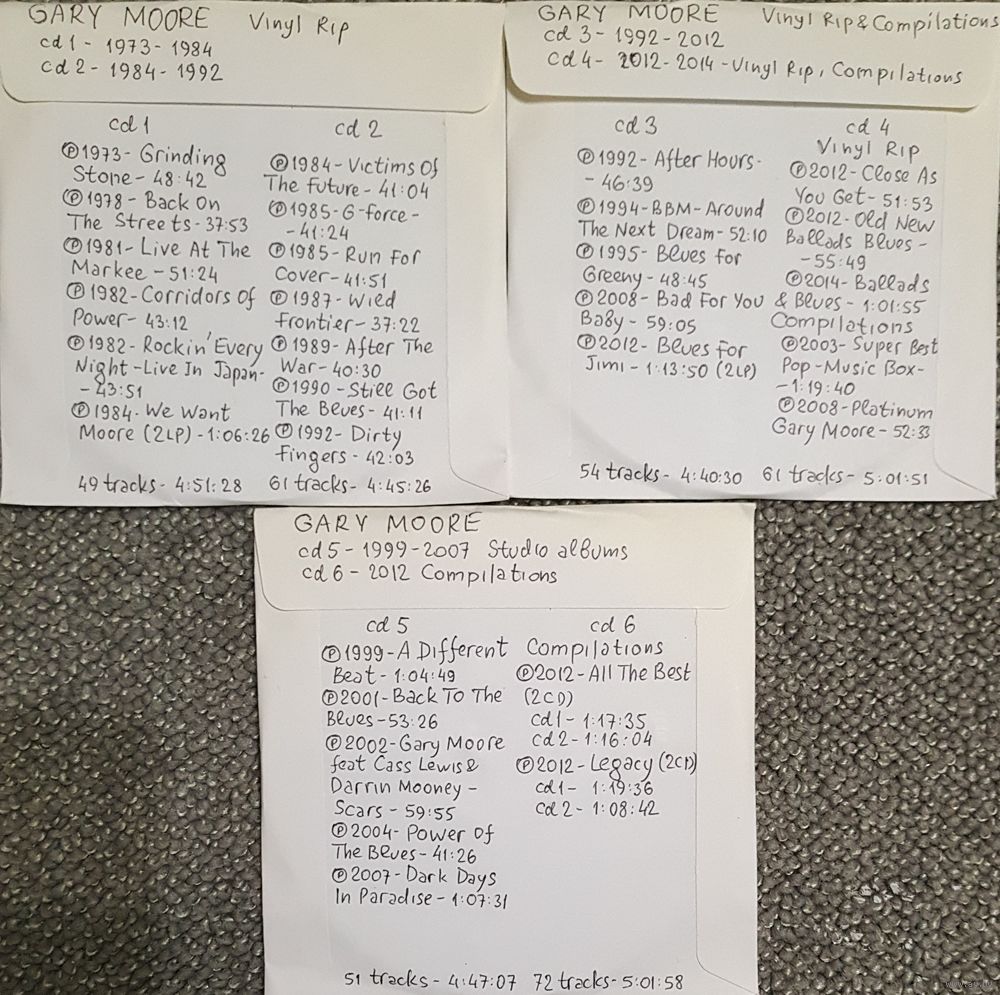 GARY MOORE Vinyl Rip
cd 1 - 1973 - 1984
cd 2 - 1984 - 1992
cd 1
Ⓟ1973 - Grinding
Stone - 48:42
Ⓟ1978 - Back On
The Streets - 37:53
Ⓟ1981 - Live At The
Markee - 51:24
Ⓟ1982 - Corridors Of
Power - 43:12
Ⓟ1982 - Rockin' Every
Night - Live In Japan -
- 43:51
Ⓟ1984 - We Want
Moore (2LP) - 1:06:26
49 tracks - 4:51:28
cd 2
Ⓟ1984 - Victims Of
The Future - 41:04
Ⓟ1985 - G-Force -
- 41:24
Ⓟ1985 - Run For
Cover - 41:51
Ⓟ1987 - Wild
Frontier - 37:22
Ⓟ1989 - After The
War - 40:30
Ⓟ1990 - Still Got
The Blues - 41:11
Ⓟ1992 - Dirty
Fingers - 42:03
61 tracks - 4:45:26
GARY MOORE Vinyl Rip & Compilations
cd 3 - 1992 - 2012
cd 4 - 2012 - 2014 - Vinyl Rip, Compilations
cd 3
Ⓟ1992 - After Hours -
- 46:39
Ⓟ1994 - BBM - Around
The Next Dream - 52:10
Ⓟ1995 - Blues For
Greeny - 48:45
Ⓟ2008 - Bad For You
Baby - 59:05
Ⓟ2012 - Blues For
Jimi - 1:13:50 (2LP)
54 tracks - 4:40:30
cd 4
Vinyl Rip
Ⓟ2012 - Close As
You Get - 51:53
Ⓟ2012 - Old New
Ballads Blues -
- 55:49
Ⓟ2014 - Ballads
& Blues - 1:01:55
Compilations
Ⓟ2003 - Super Best
Pop - Music Box -
- 1:19:40
Ⓟ2008 - Platinum
Gary Moore - 52:33
61 tracks - 5:01:51
GARY MOORE
cd 5 - 1999 - 2007 Studio albums
cd 6 - 2012 Compilations
cd 5
Ⓟ1999 - A Different
Beat - 1:04:49
Ⓟ2001 - Back To The
Blues - 53:26
Ⓟ2002 - Gary Moore
feat Cass Lewis &
Darrin Mooney -
Scars - 59:55
Ⓟ2004 - Power Of
The Blues - 41:26
Ⓟ2007 - Dark Days
In Paradise - 1:07:31
51 tracks - 4:47:07
cd 6
Compilations
Ⓟ2012 - All The Best
(2CD)
cd 1 - 1:17:35
cd 2 - 1:16:04
Ⓟ2012 - Legacy (2CD)
cd 1 - 1:19:36
cd 2 - 1:08:42
72 tracks - 5:01:58